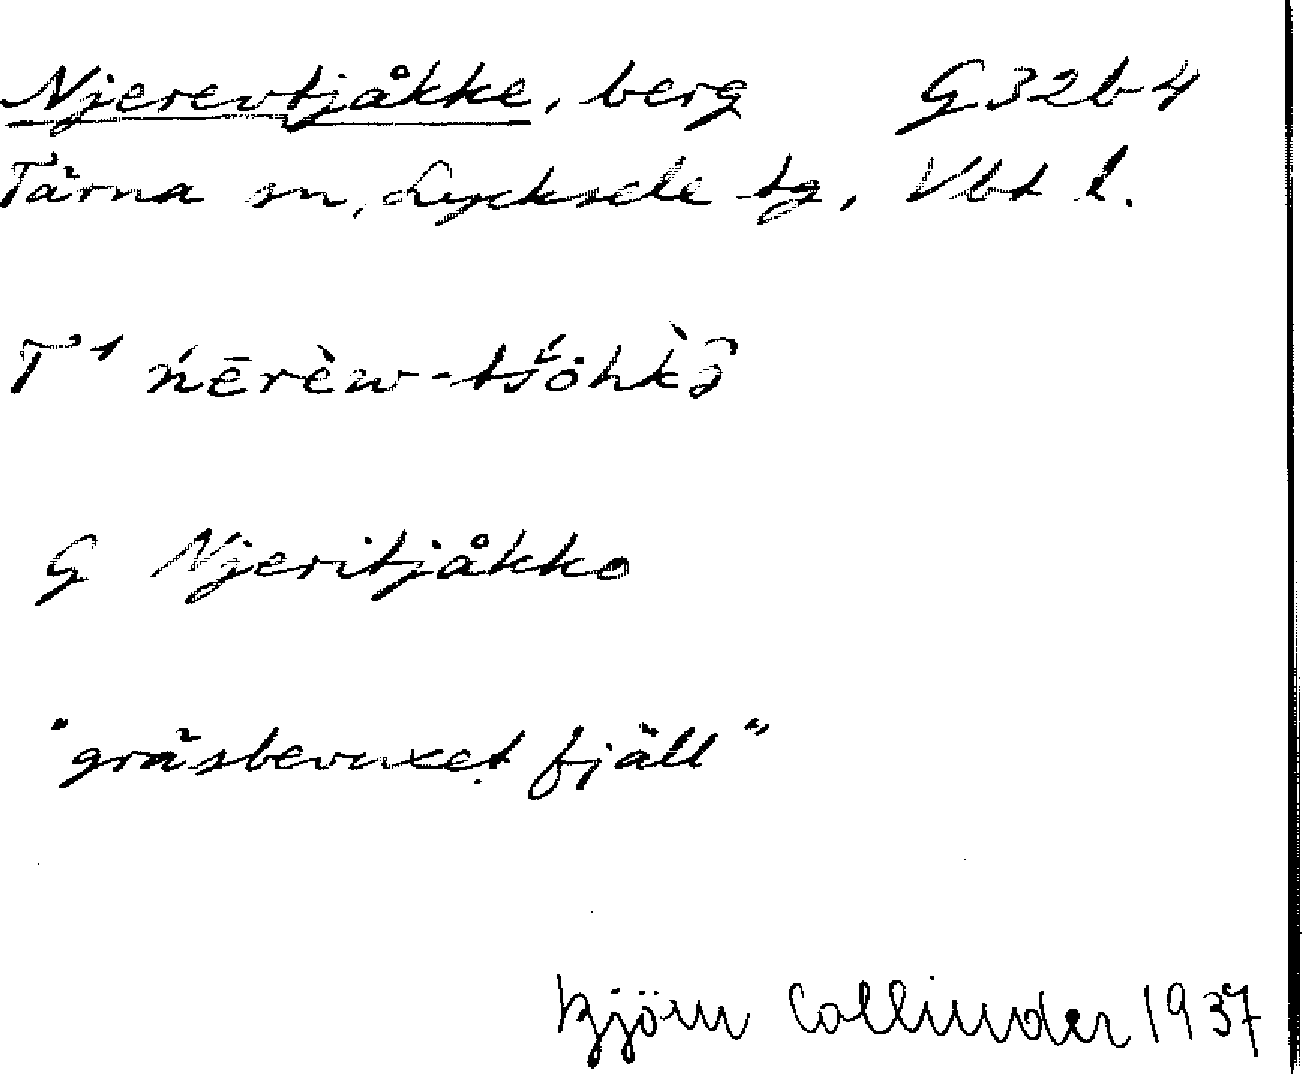 Njerevtjåkke, berg G32b4
Tärna sn, Lycksele tg, Vbt l.
T¹ ńērèw-tś́öhk̀ə̑
G Njeritjåkko
"gräsbevuxet fjäll"
Björn Collinder 1937